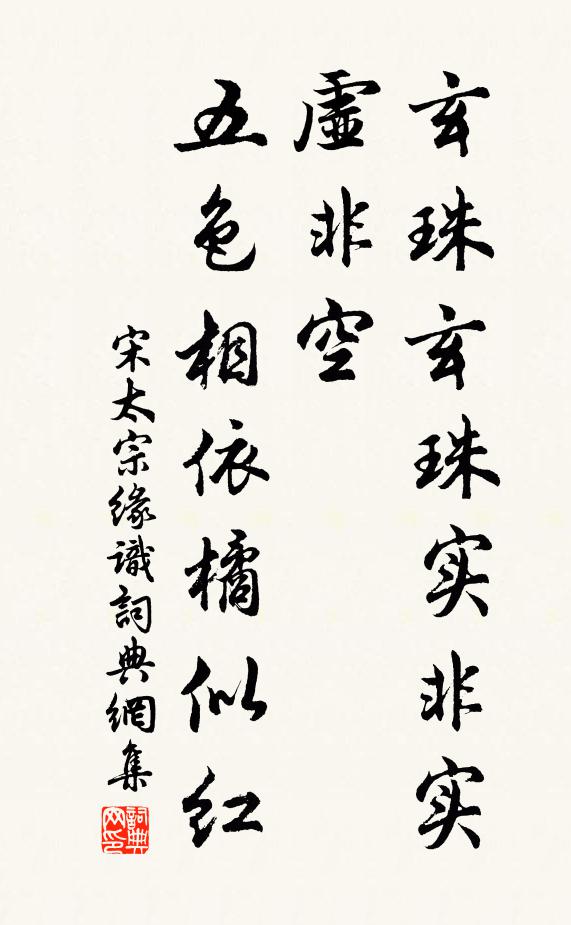 玄珠玄珠实非实
虛非空
五色相依橘似红
宋太宗缘識詞典網集
詞典网印